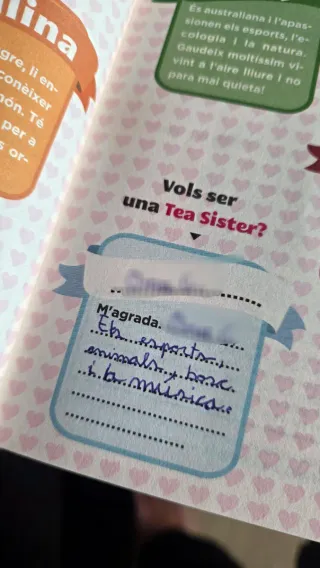 lina
gre, li en-
conèixer
món. Té
per a
s or-
És australiana i l'apas-
sionen els esports, l'e-
cologia i la natura.
Gaudeix moltíssim vi-
vint a l'aire lliure i no
para mai quieta!
Vols ser
una Tea Sister?
M'agrada.
esports,
animals,
i la música.